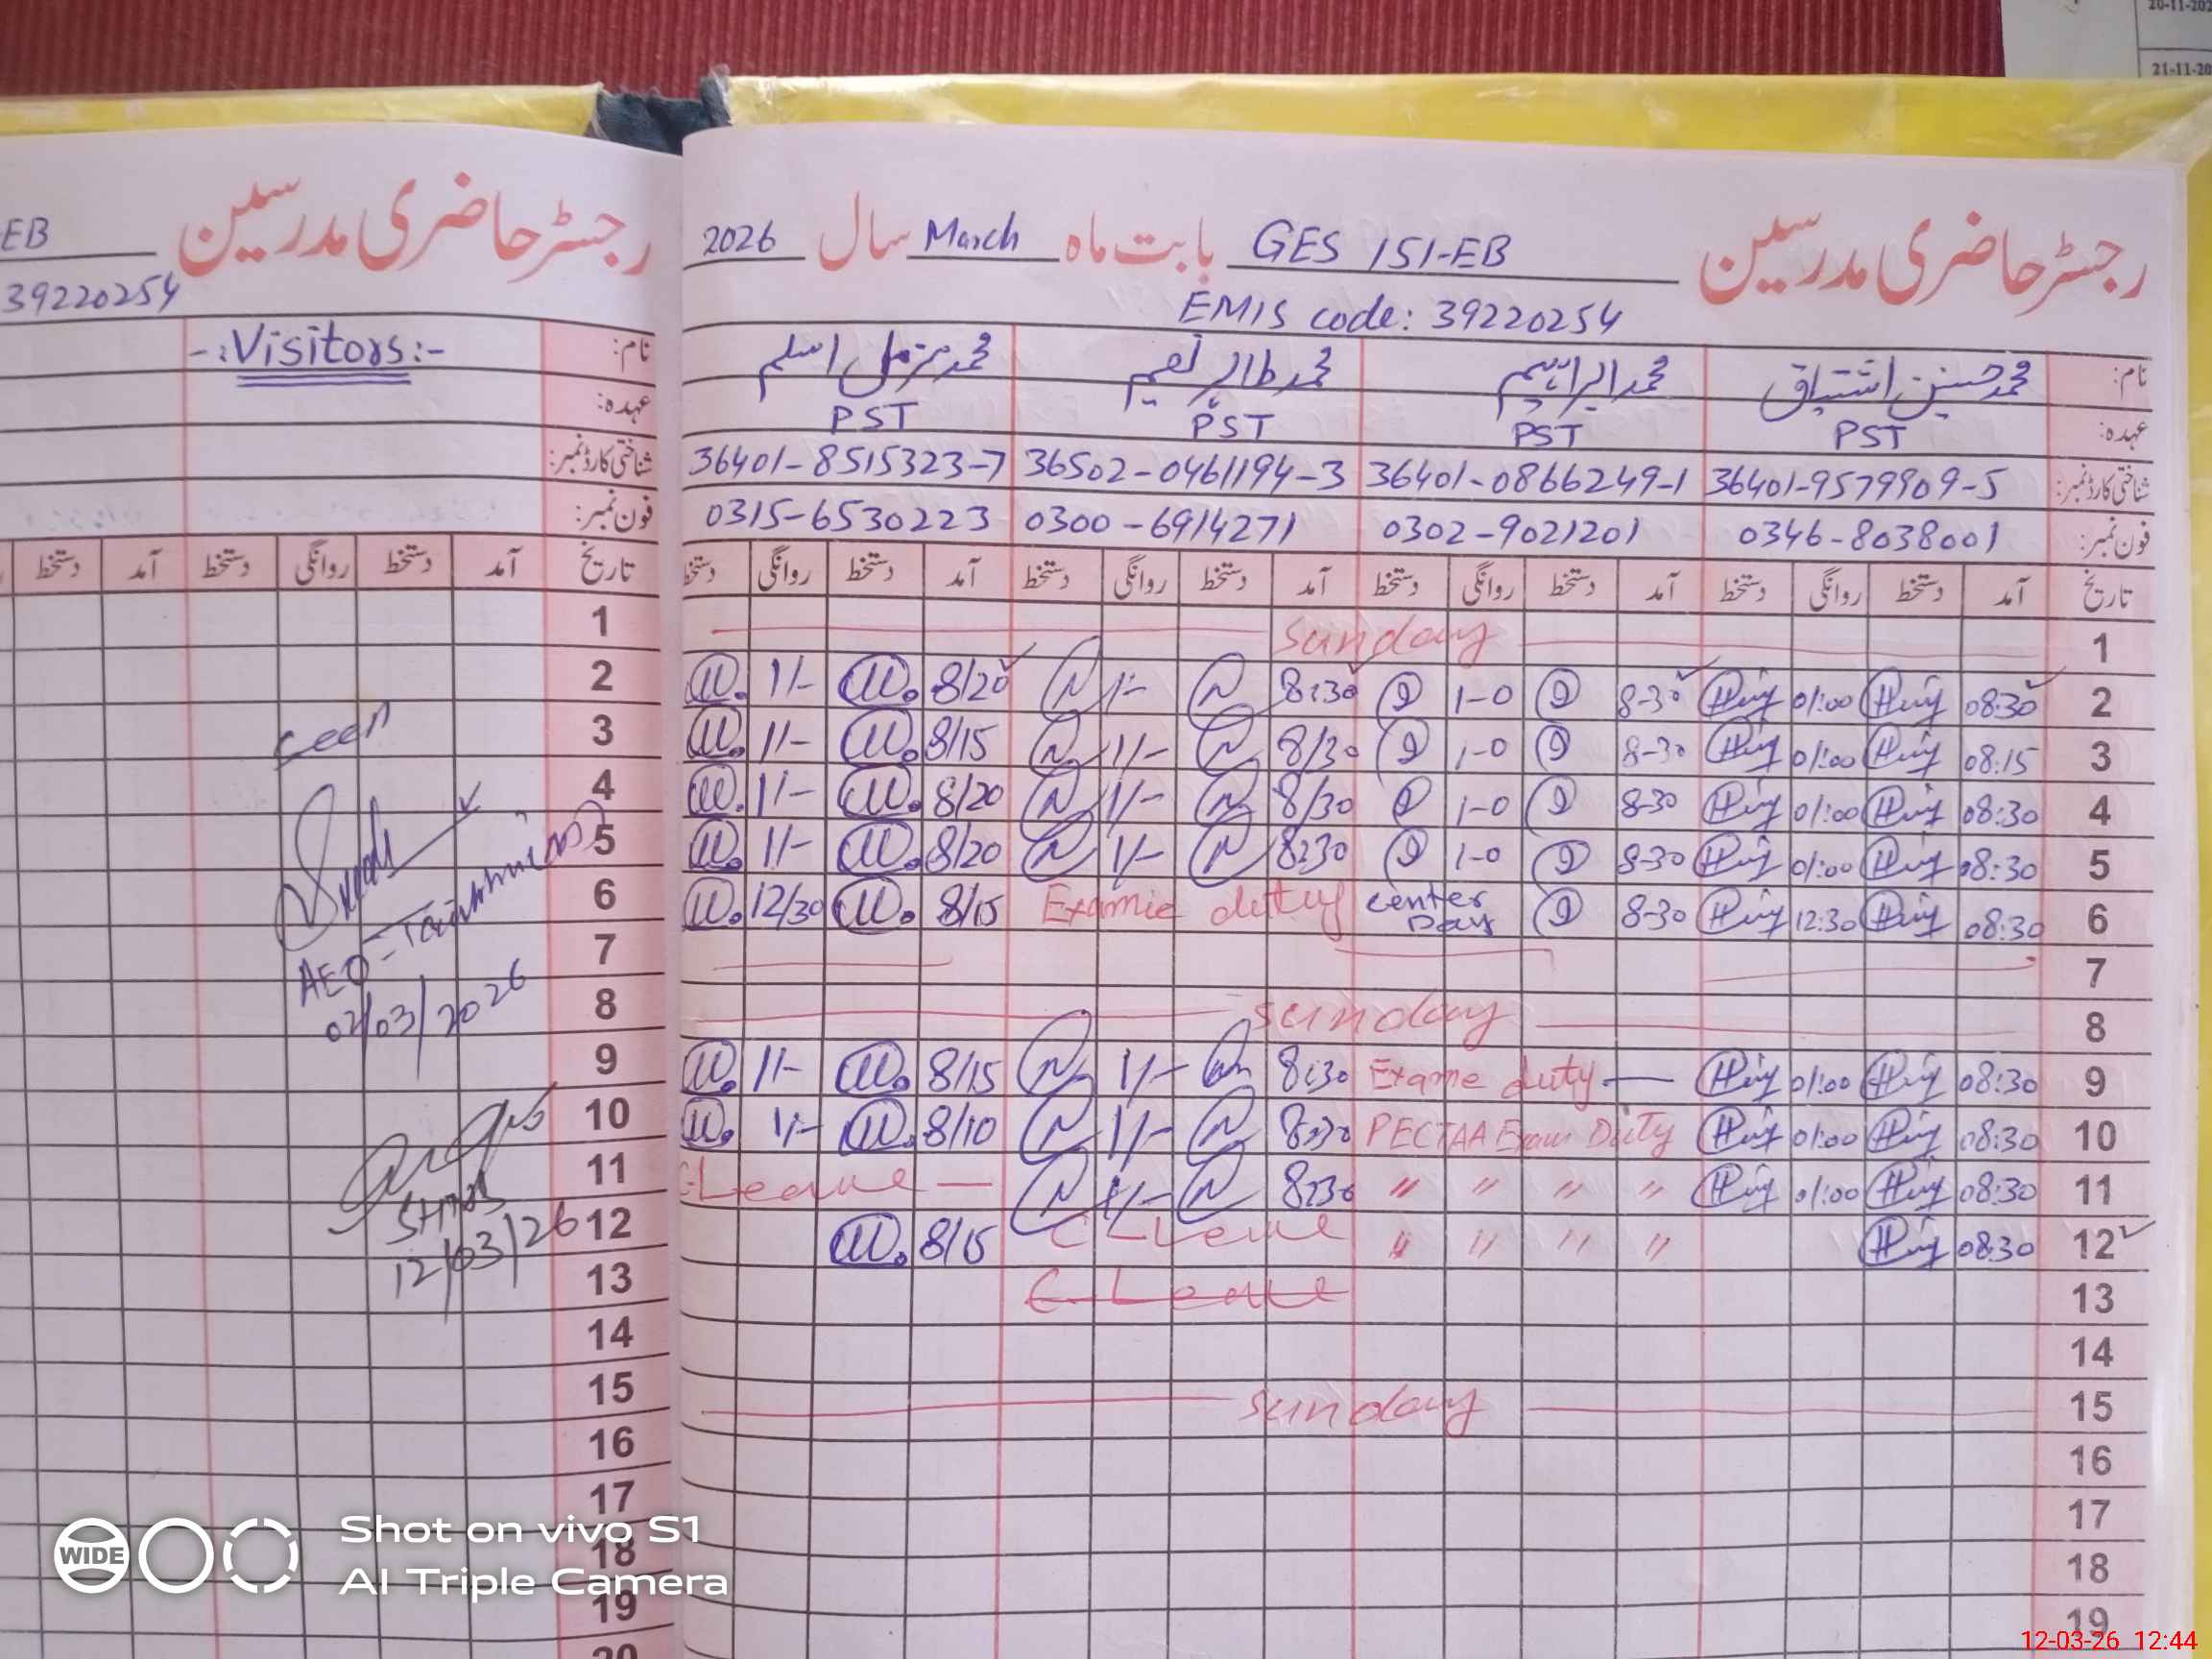 20-11-202
21-11-20
EB رجسٹر حاضری مدرسین
39220254
نام: -:Visitors:-
عہدہ:
شناختی کارڈ نمبر:
فون نمبر:
تاریخ آمد دستخط روانگی دستخط آمد دستخط
1
2
3 seen
4
5
6
7 AEO
8 02/03/2026
9
10
11
12 12/03/26
13
14
15
16
17
18
19
20
رجسٹر حاضری مدرسین GES 151-EB بابت ماہ March سال 2026
EMIS code: 39220254
نام: محمد حسنین اشتیاق محمد ابراہیم محمد طاہر نعیم محمد مزمل اسلم
عہدہ: PST PST PST PST
شناختی کارڈ نمبر: 36401-9579909-5 36401-0866249-1 36502-0461194-3 36401-8515323-7
فون نمبر: 0346-8038001 0302-9021201 0300-6914271 0315-6530223
تاریخ آمد دستخط روانگی دستخط آمد دستخط روانگی دستخط آمد دستخط روانگی دستخط آمد دستخط روانگی دستخط
1 Sunday
2 08:30 01:00 8-30 1-0 8:30 1/- 8/20 1/-
3 08:15 01:00 8-30 1-0 8/30 1/- 8/15 1/-
4 08:30 01:00 8-30 1-0 8/30 1/- 8/20 1/-
5 08:30 01:00 8-30 1-0 8:30 1/- 8/20 1/-
6 08:30 12:30 8-30 center Day Examie duty 8/15 12/30
7
8 sunday
9 08:30 01:00 Exame duty 8:30 1/- 8/15 1/-
10 08:30 01:00 PECTAA Exam Duty 8:30 1/- 8/10 1/-
11 08:30 01:00 " " " " 8:30 1/- C-Leave
12 08:30 " " " " C-Leave 8/15
13 C-Leave
14
15 sunday
16
17
18
19
WIDE
Shot on vivo S1
AI Triple Camera
12-03-26 12:44